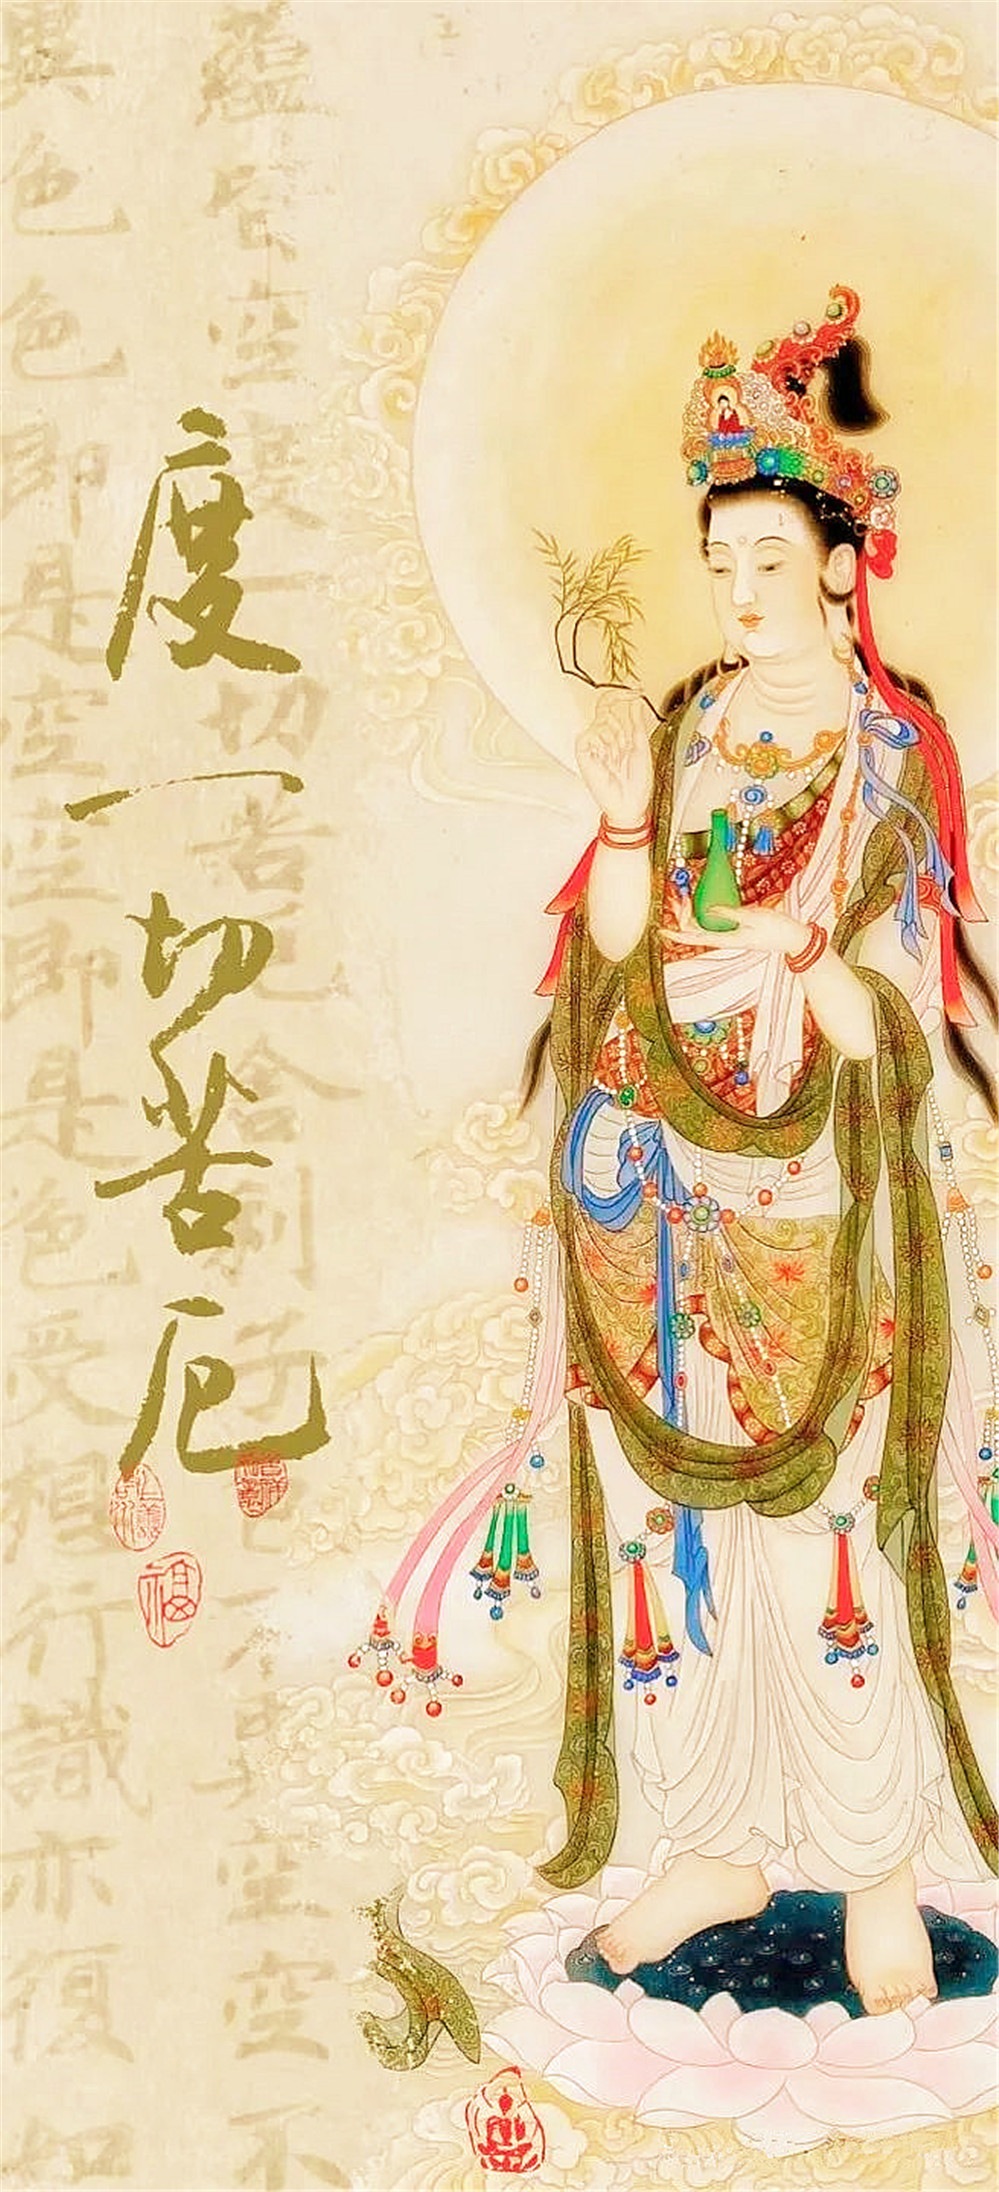 度一切苦厄
蘊皆空度一切苦厄舍利子色不異空空不
異色色即是空空即是色受想行識亦復如
福